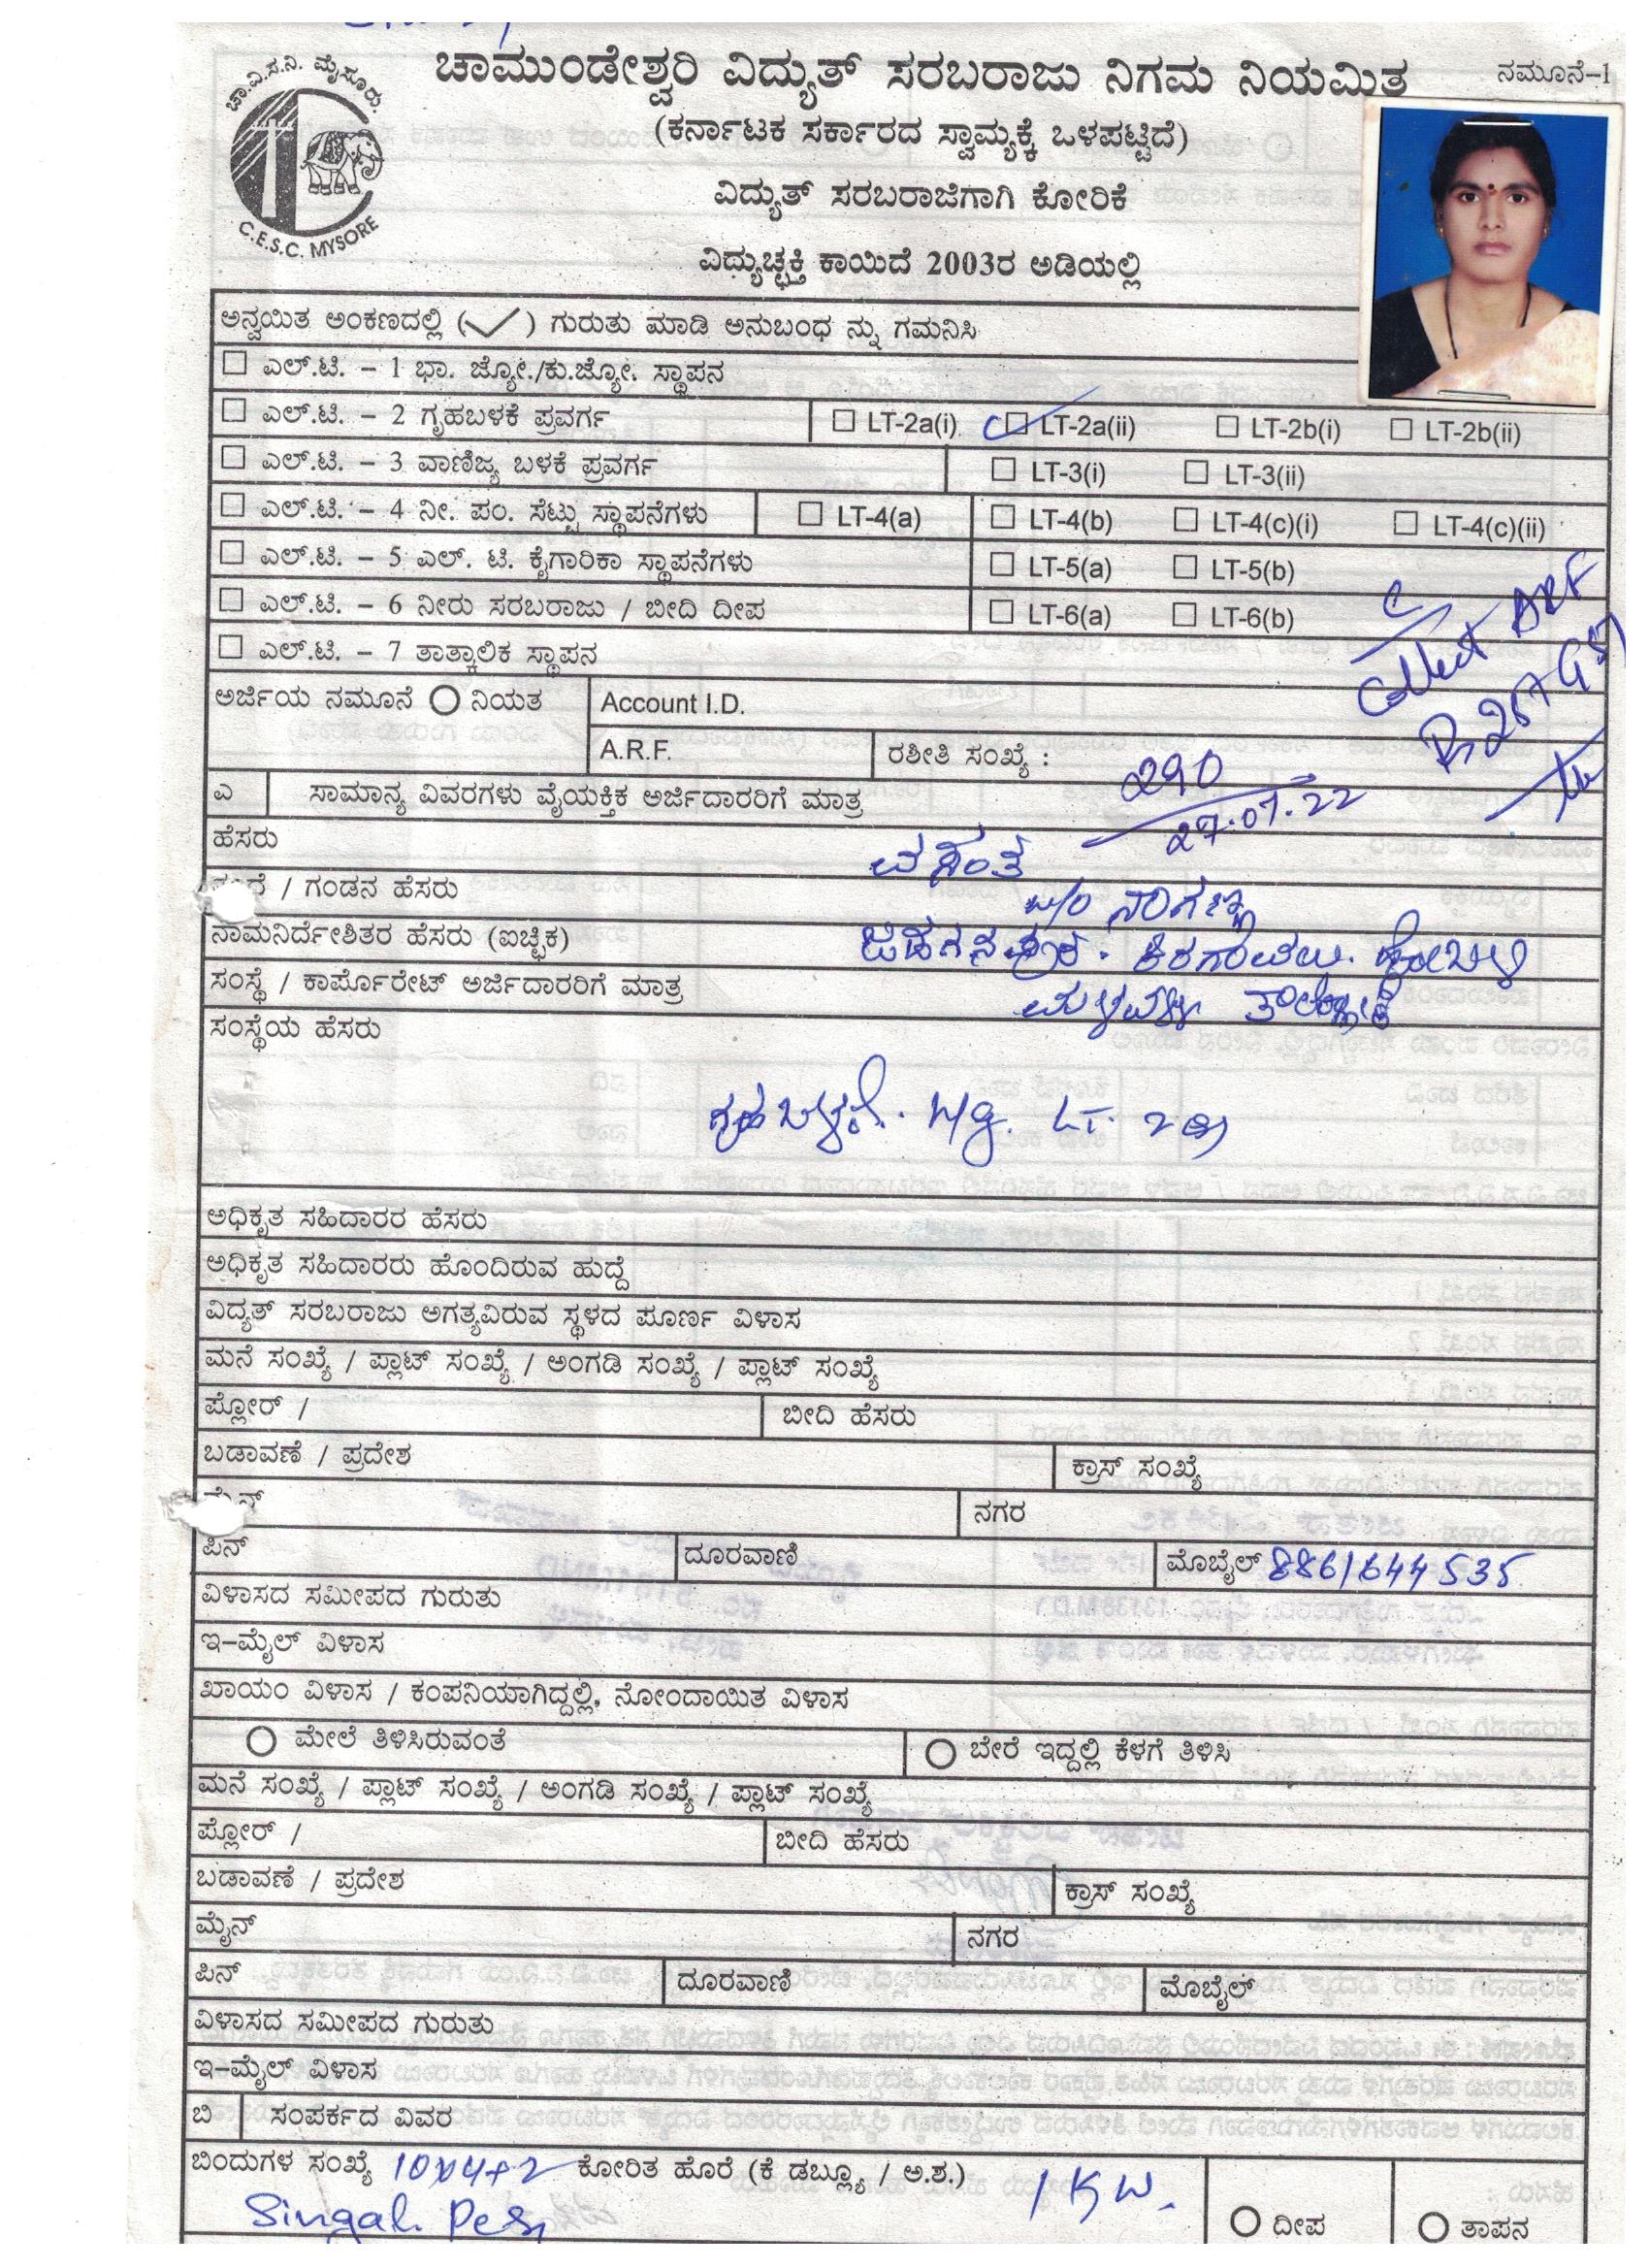 ಚಾಮುಂಡೇಶ್ವರಿ ವಿದ್ಯುತ್ ಸರಬರಾಜು ನಿಗಮ ನಿಯಮಿತ
ನಮೂನೆ–1
ಚಾ.ವಿ.ಸ.ನಿ. ಮೈಸೂರು.
C.E.S.C. MYSORE
(ಕರ್ನಾಟಕ ಸರ್ಕಾರದ ಸ್ವಾಮ್ಯಕ್ಕೆ ಒಳಪಟ್ಟಿದೆ)
ವಿದ್ಯುತ್ ಸರಬರಾಜಿಗಾಗಿ ಕೋರಿಕೆ
ವಿದ್ಯುಚ್ಛಕ್ತಿ ಕಾಯಿದೆ 2003ರ ಅಡಿಯಲ್ಲಿ
ಅನ್ವಯಿತ ಅಂಕಣದಲ್ಲಿ (✓) ಗುರುತು ಮಾಡಿ ಅನುಬಂಧ ನ್ನು ಗಮನಿಸಿ
ಎಲ್.ಟಿ. – 1 ಭಾ. ಜ್ಯೋ./ಕು.ಜ್ಯೋ. ಸ್ಥಾಪನ
ಎಲ್.ಟಿ. – 2 ಗೃಹಬಳಕೆ ಪ್ರವರ್ಗ LT-2a(i) LT-2a(ii) LT-2b(i) LT-2b(ii)
ಎಲ್.ಟಿ. – 3 ವಾಣಿಜ್ಯ ಬಳಕೆ ಪ್ರವರ್ಗ LT-3(i) LT-3(ii)
ಎಲ್.ಟಿ. – 4 ನೀ. ಪಂ. ಸೆಟ್ಟು ಸ್ಥಾಪನೆಗಳು LT-4(a) LT-4(b) LT-4(c)(i) LT-4(c)(ii)
ಎಲ್.ಟಿ. – 5 ಎಲ್. ಟಿ. ಕೈಗಾರಿಕಾ ಸ್ಥಾಪನೆಗಳು LT-5(a) LT-5(b)
ಎಲ್.ಟಿ. – 6 ನೀರು ಸರಬರಾಜು / ಬೀದಿ ದೀಪ LT-6(a) LT-6(b)
ಎಲ್.ಟಿ. – 7 ತಾತ್ಕಾಲಿಕ ಸ್ಥಾಪನ
Collect ARF
ಅರ್ಜಿಯ ನಮೂನೆ ನಿಯತ Account I.D.
A.R.F. ರಶೀತಿ ಸಂಖ್ಯೆ : 290
27.07.22
ಎ ಸಾಮಾನ್ಯ ವಿವರಗಳು ವೈಯಕ್ತಿಕ ಅರ್ಜಿದಾರರಿಗೆ ಮಾತ್ರ
ಹೆಸರು ವಸಂತ
/ ಗಂಡನ ಹೆಸರು w/o ನಾಗಣ್ಣ
ನಾಮನಿರ್ದೇಶಿತರ ಹೆಸರು (ಐಚ್ಛಿಕ) ಕಿರಗಾವಲು. ಹೋಬಳಿ
ಸಂಸ್ಥೆ / ಕಾರ್ಪೊರೇಟ್ ಅರ್ಜಿದಾರರಿಗೆ ಮಾತ್ರ ಮಳವಳ್ಳಿ ತಾಲ್ಲೂಕು
ಸಂಸ್ಥೆಯ ಹೆಸರು
ಗೃಹ ಬಳಕೆ. LT.
ಅಧಿಕೃತ ಸಹಿದಾರರ ಹೆಸರು
ಅಧಿಕೃತ ಸಹಿದಾರರು ಹೊಂದಿರುವ ಹುದ್ದೆ
ವಿದ್ಯತ್ ಸರಬರಾಜು ಅಗತ್ಯವಿರುವ ಸ್ಥಳದ ಪೂರ್ಣ ವಿಳಾಸ
ಮನೆ ಸಂಖ್ಯೆ / ಪ್ಲಾಟ್ ಸಂಖ್ಯೆ / ಅಂಗಡಿ ಸಂಖ್ಯೆ / ಪ್ಲಾಟ್ ಸಂಖ್ಯೆ
ಪ್ಲೋರ್ / ಬೀದಿ ಹೆಸರು
ಬಡಾವಣೆ / ಪ್ರದೇಶ ಕ್ರಾಸ್ ಸಂಖ್ಯೆ
ನಗರ
ಪಿನ್ ದೂರವಾಣಿ ಮೊಬೈಲ್ 8861644535
ವಿಳಾಸದ ಸಮೀಪದ ಗುರುತು
ಇ–ಮೈಲ್ ವಿಳಾಸ
ಖಾಯಂ ವಿಳಾಸ / ಕಂಪನಿಯಾಗಿದ್ದಲ್ಲಿ, ನೋಂದಾಯಿತ ವಿಳಾಸ
ಮೇಲೆ ತಿಳಿಸಿರುವಂತೆ ಬೇರೆ ಇದ್ದಲ್ಲಿ ಕೆಳಗೆ ತಿಳಿಸಿ
ಮನೆ ಸಂಖ್ಯೆ / ಪ್ಲಾಟ್ ಸಂಖ್ಯೆ / ಅಂಗಡಿ ಸಂಖ್ಯೆ / ಪ್ಲಾಟ್ ಸಂಖ್ಯೆ
ಪ್ಲೋರ್ / ಬೀದಿ ಹೆಸರು
ಬಡಾವಣೆ / ಪ್ರದೇಶ ಕ್ರಾಸ್ ಸಂಖ್ಯೆ
ಮೈನ್ ನಗರ
ಪಿನ್ ದೂರವಾಣಿ ಮೊಬೈಲ್
ವಿಳಾಸದ ಸಮೀಪದ ಗುರುತು
ಇ–ಮೈಲ್ ವಿಳಾಸ
ಬಿ ಸಂಪರ್ಕದ ವಿವರ
ಬಿಂದುಗಳ ಸಂಖ್ಯೆ ಕೋರಿತ ಹೊರೆ (ಕೆ ಡಬ್ಲ್ಯೂ / ಅ.ಶ.) 1 KW.
Singal. ದೀಪ ತಾಪನ